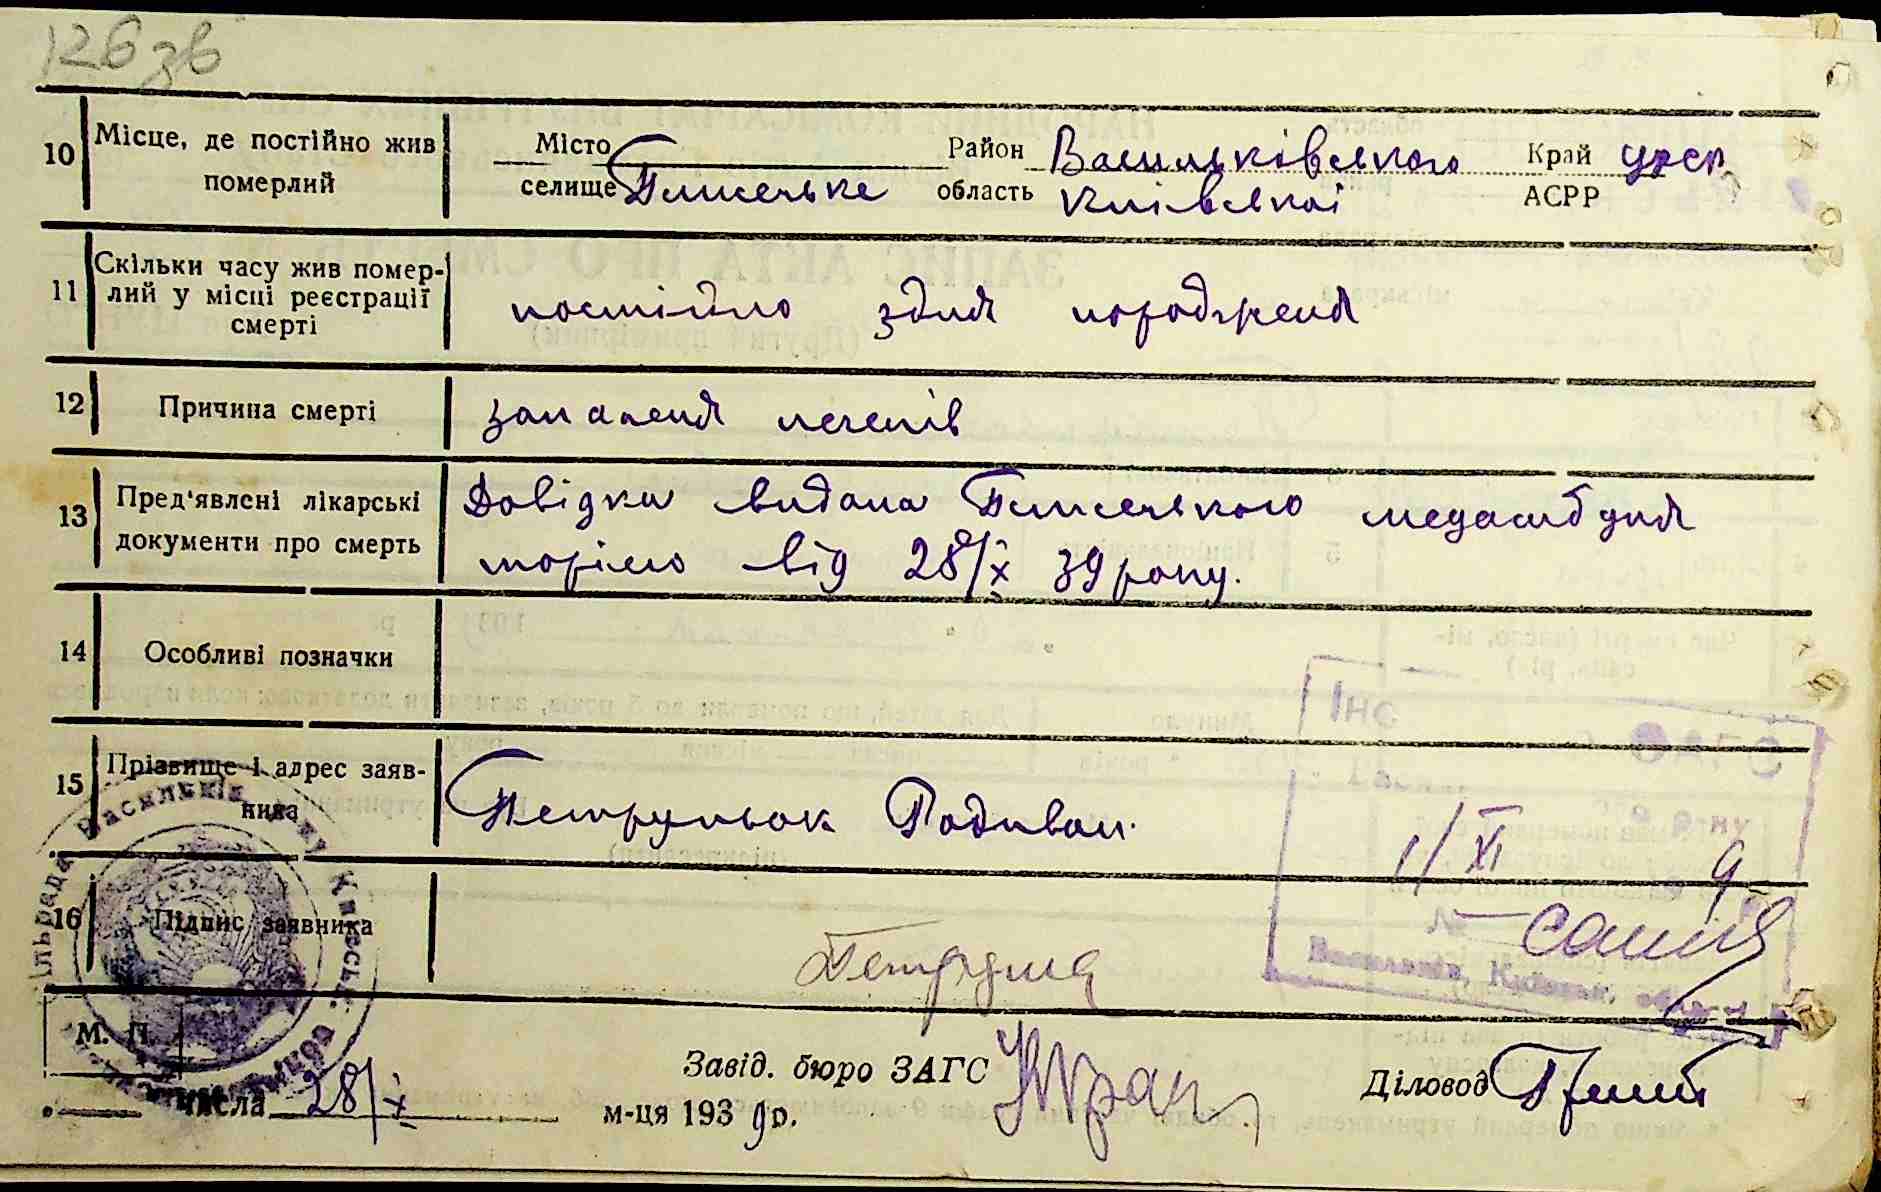 126 зв
10 Місце, де постійно жив померлий Місто селище Район Васильківського область Київської Край УРСР АСРР
11 Скільки часу жив померлий у місці реєстрації смерті постійно здня народженя
12 Причина смерті запаленя легенів
13 Пред'явлені лікарські документи про смерть Довідка видана медамбуля
торією від 28/X 39 року.
14 Особливі позначки
15 Прізвище і адрес заявника Родивон.
16 Підпис заявника
Інс ЗАГС
1/XI 9
№
Васильків, Київськ. області
М. П.
числа 28/X м-ця 1939 р.
Завід. бюро ЗАГС
Діловод